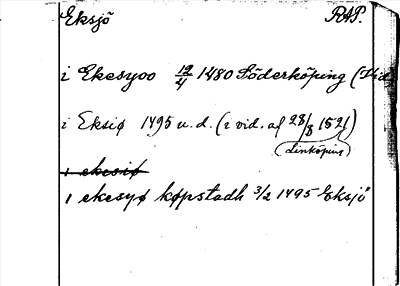 Eksjö RAP.
i Ekesyoo 12/4 1480 Söderköping (Hid
i Eksiø 1495 u. d. (i vid. af 28/8 1521)
(Linköping)
i ekesiø
i ekesyø køpstadh 3/2 1495 Eksjö